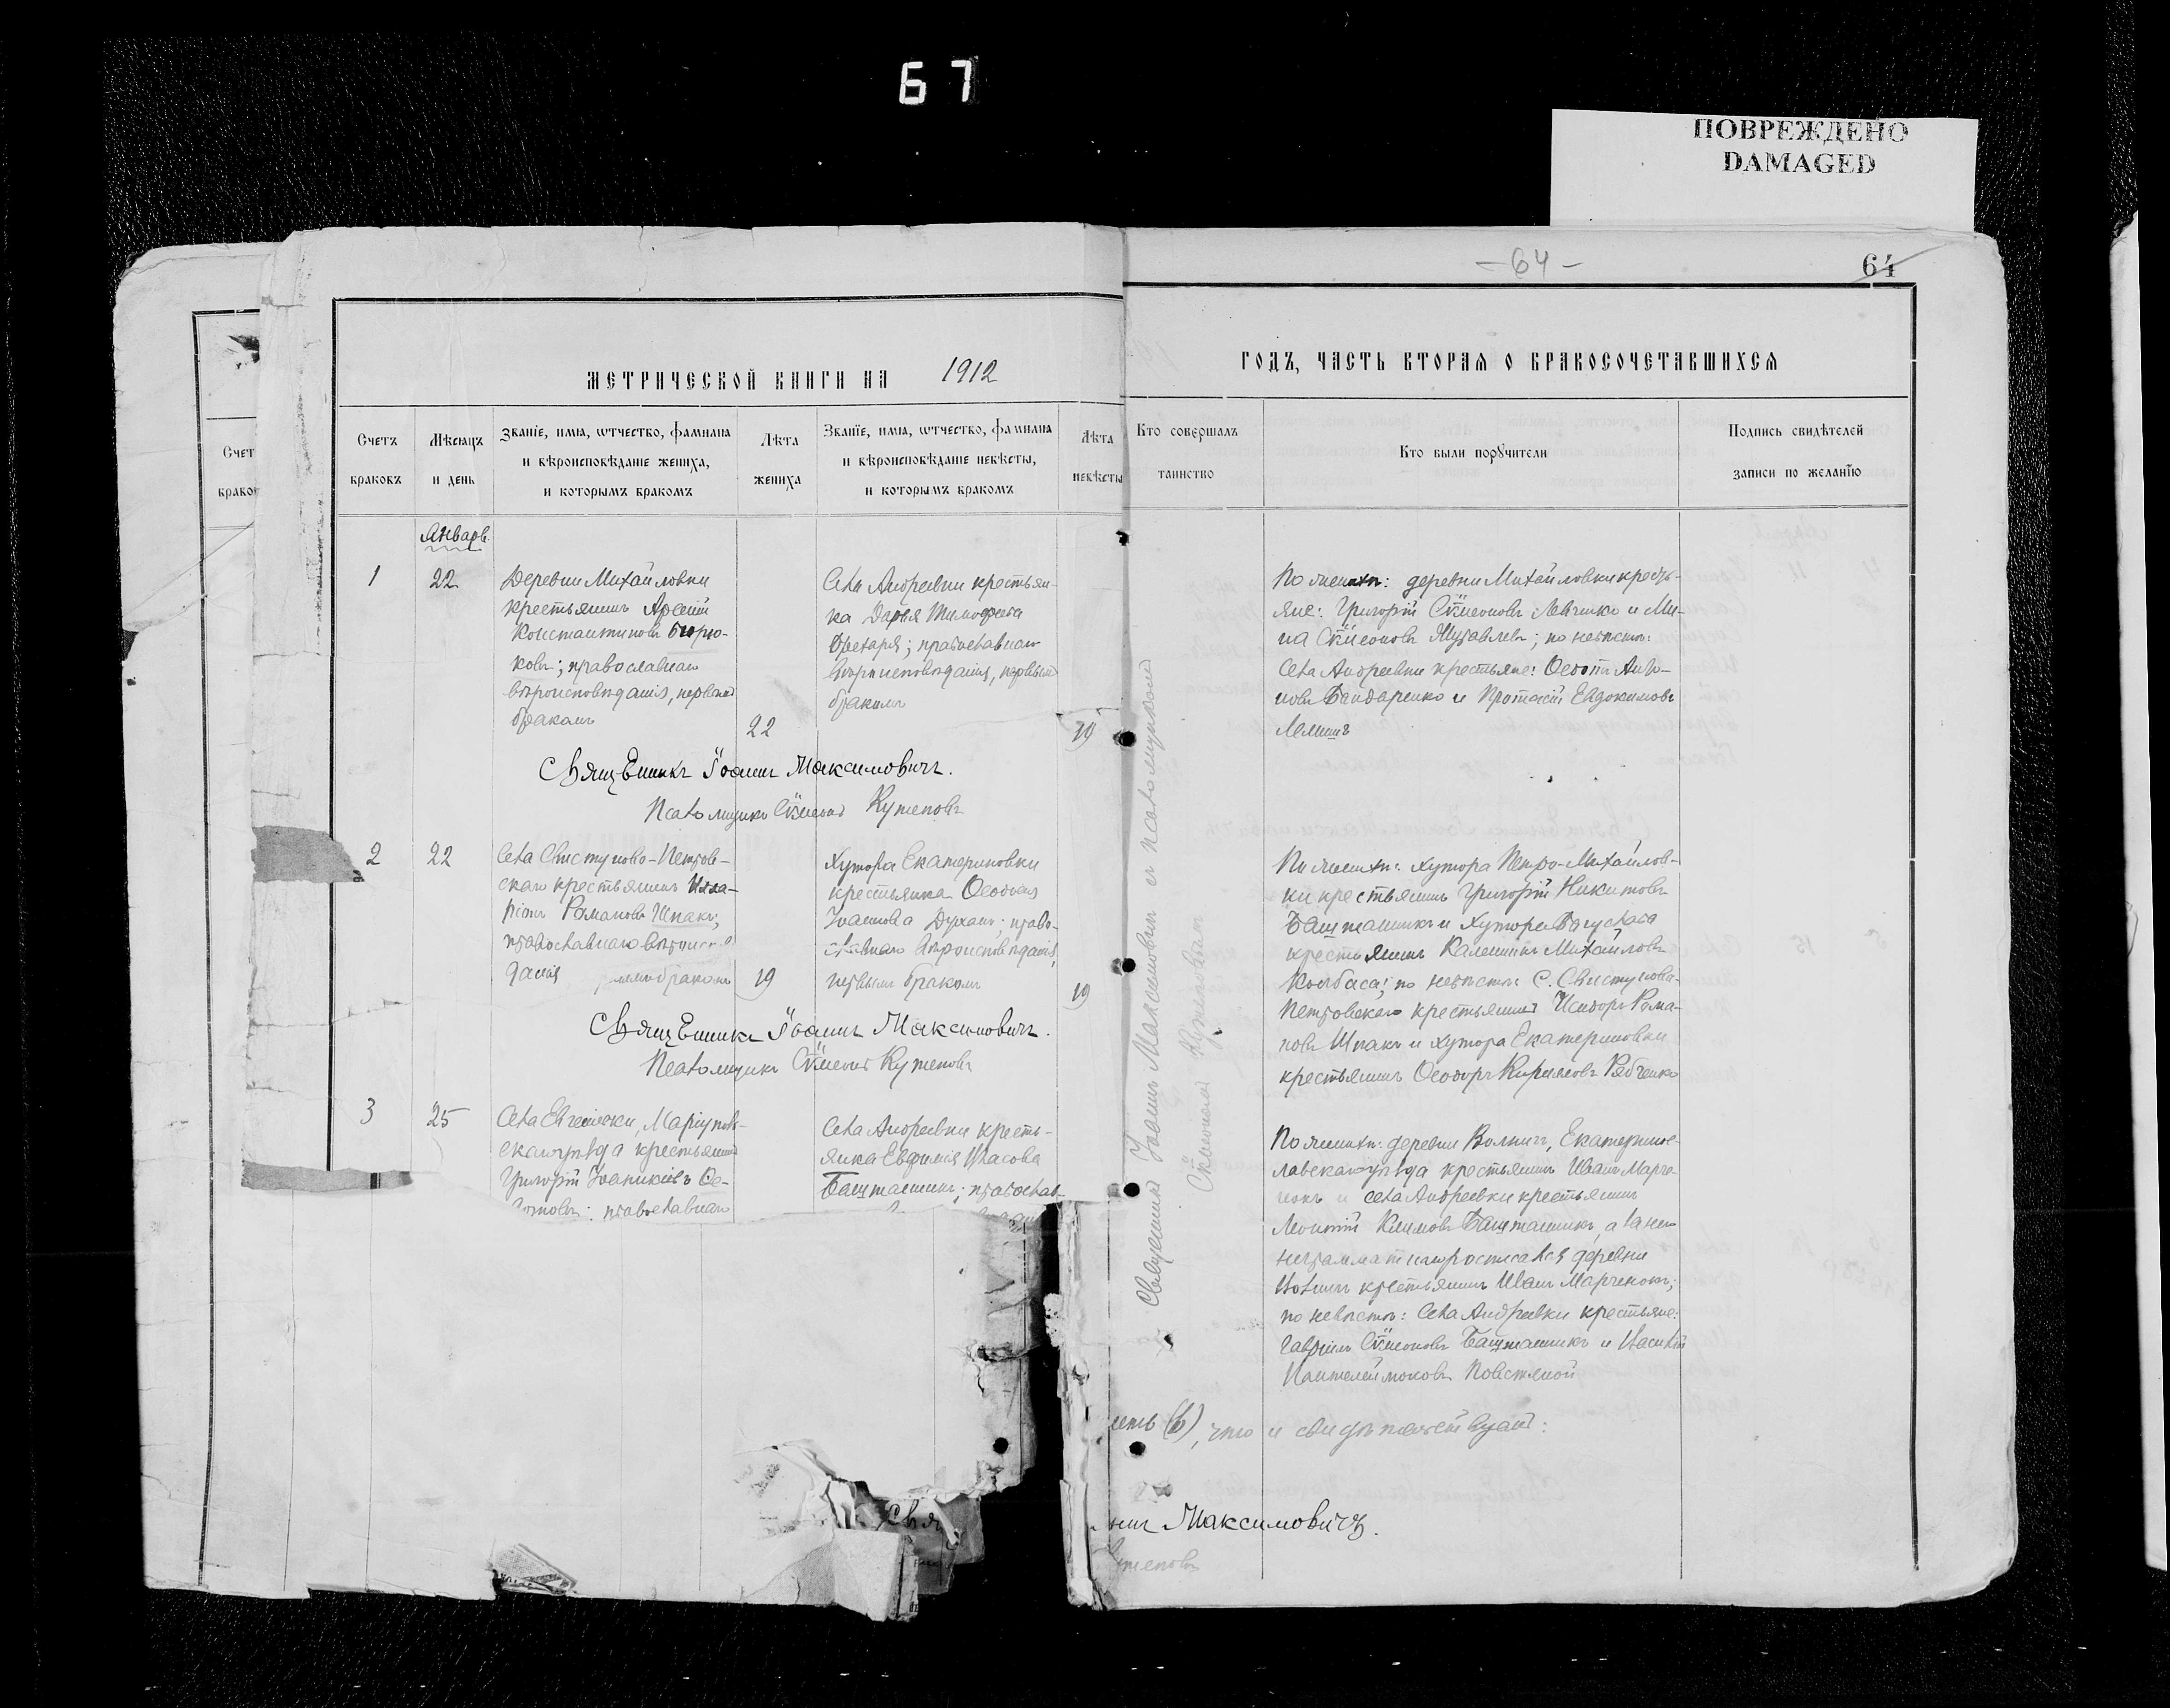 67
ПОВРЕЖДЕНО
DAMAGED
-64-
64
МЕТРИЧЕСКОЙ КНИГИ НА 1912
ГОДЪ, ЧАСТЬ ВТОРАЯ О БРАКОСОЧЕТАВШИХСЯ
Счет
браков
Счетъ
браковъ
Мѣсяцъ
и день
Званіе, имя, отчество, фамилия
и вѣроисповѣданіе жениха,
и которымъ бракомъ
Лѣта
жениха
Званіе, имя, отчество, фамилия
и вѣроисповѣданіе невѣсты,
и которымъ бракомъ
Лѣта
невѣсты
Кто совершалъ
таинство
Кто были поручители
Подпись свидѣтелей
записи по желанію
Январь
1
22
Деревни Михайловки
крестьянинъ Арсеній
Константиновъ Бирю-
ковъ; православнаго
вѣроисповѣданія, первымъ
бракомъ
22
Села Андреевки крестьян-
ка Дарья Тимофеева
православнаго
вѣроисповѣданія, первымъ
бракомъ
19
По женихѣ: деревни Михайловки кресть-
яне: Григорій Сѷмеоновъ Левченко и Ми-
на Сѷмеоновъ Журавлевъ; по невѣстѣ:
Села Андреевки крестьяне: Ѳеодотъ
новъ Бондаренко и Протасій Евдокимовъ
Лемишъ
Священникъ Іоаннъ Максимовичъ.
Псаломщикъ Сѷмеонъ Кутеповъ
2
22
Села Свистуново-Петров-
скаго крестьянинъ Илла-
ріонъ Романовъ Шпакъ;
православнаго вѣроиспо
данія бракомъ
19
Хутора Екатериновки
крестьянка Ѳеодосія
Іоаннова Духанъ; право-
славнаго вѣроисповѣданія,
первымъ бракомъ
19
По женихѣ: хутора Петро-Михайлов-
ки крестьянинъ Григорій Никитовъ
Баштанникъ и хутора
крестьянинъ Калинникъ Михайловъ
Колбаса; по невѣстѣ: С. Свистуново-
Петровскаго крестьянинъ Исидоръ Рома-
новъ Шпакъ и хутора Екатериновки
крестьянинъ Ѳеодоръ Кирилловъ Рябченко
Священникъ Іоаннъ Максимовичъ.
Псаломщикъ Сѷмеонъ Кутеповъ
3
25
Села Евгеніевки, Маріуполь-
скаго уѣзда крестьянинъ
Григорій Іоанникіевъ Ѳе-
православнаго
Села Андреевки кресть-
янка Евфимія Власова
Баштанникъ; православ-
По женихѣ: деревни Волничъ, Екатерино-
славскаго уѣзда крестьянинъ Иванъ Марче-
нокъ и села Андреевки крестьянинъ
Леонтій Климовъ Баштанникъ, а за нег
неграмотнаго росписался деревни
крестьянинъ Иванъ Марченокъ;
по невѣстѣ: Села Андреевки крестьяне:
Гавріилъ Сѷмеоновъ Баштанникъ и Василій
Пантелеймоновъ Повстяной
Священникъ Іоаннъ Максимовичъ съ псаломщикомъ
Сѷмеономъ Кутеповым
(6), что и свидѣтельствуемъ:
Свящ
Максимовичъ.
теповъ